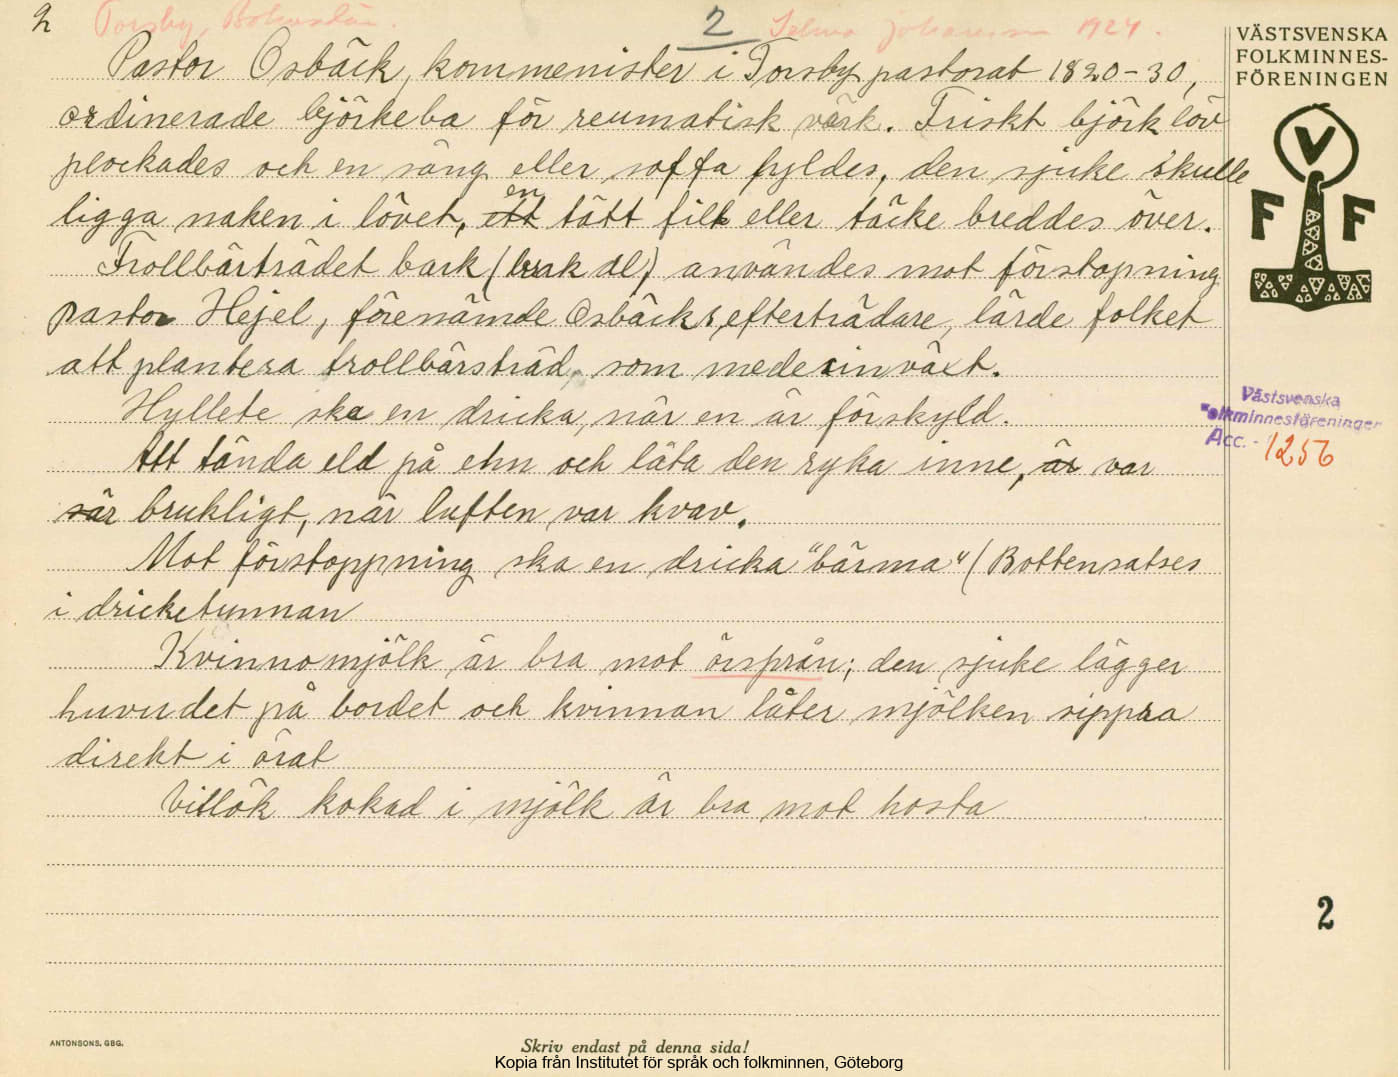 2 Torsby, Bohuslän. 2 Selma Johansson 1924.
Pastor Osbäck, kommenister i Torsby pastorat 1820-30,
ordinerade björkeba för reumatisk värk. Friskt björklöv
plockades och en säng eller soffa fyldes, den sjuke skulle
ligga naken i lövet, ett en tätt filt eller täcke breddes över.
Trollbärträdet bark (bark dl) användes mot förstopning
pastor Hejel, förenämde Osbäcks efterträdare, lärde folket
att plantera trollbärsträd, som medesinväxt.
Hyllete ska en dricka, när en är förskyld.
Att tända eld på ehn och låta den ryka inne, är var
sår brukligt, när luften var kvav.
Mot förstoppning ska en dricka "bärma" (Bottensatses
i dricketunnan
Kvinnomjölk är bra mot örsprån; den sjuke lägger
huvudet på bordet och kvinnan låter mjölken sippra
direkt i örat
Vitlök kokad i mjölk är bra mot hosta
VÄSTSVENSKA
FOLKMINNES-
FÖRENINGEN
V
F F
Västsvenska
Folkminnesföreningen
Acc. - 1256
2
ANTONSONS, GBG.
Skriv endast på denna sida!
Kopia från Institutet för språk och folkminnen, Göteborg